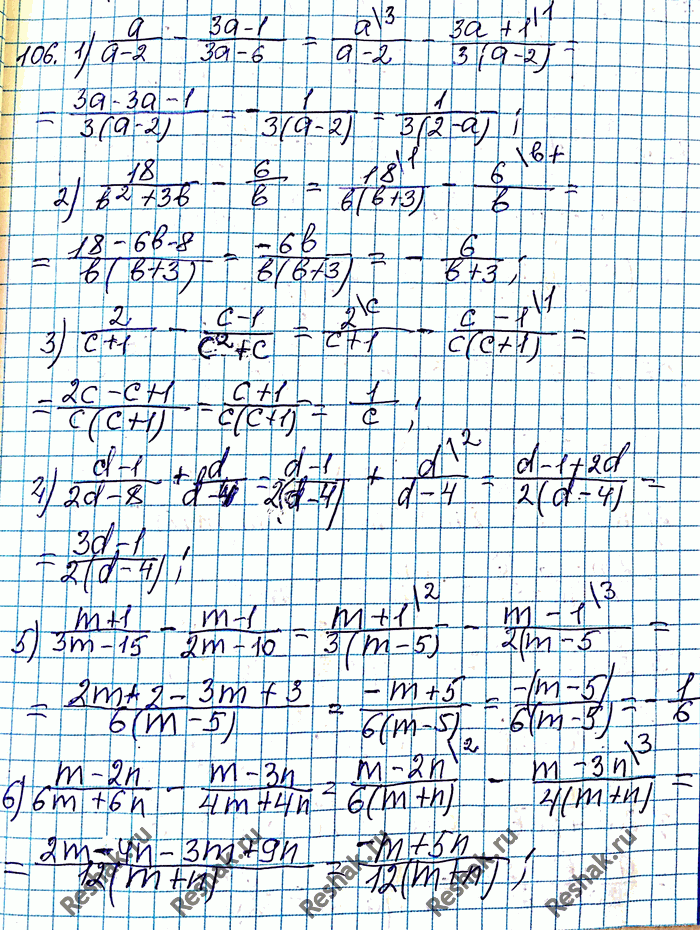 106. 1) a/(a-2) - (3a-1)/(3a-6) = a\3/(a-2) - (3a+1\1)/(3(a-2)) =
= (3a-3a-1)/(3(a-2)) = -1/(3(a-2)) = 1/(3(2-a));
2) 18/(в²+3в) - 6/в = 18\1/(в(в+3)) - 6\в+/в =
= (18-6в-8)/(в(в+3)) = -6в/(в(в+3)) = -6/(в+3);
3) 2/(c+1) - (c-1)/(c²+c) = 2\c/(c+1) - (c-1\1)/(c(c+1)) =
= (2c-c+1)/(c(c+1)) = (c+1)/(c(c+1)) = 1/c;
4) (d-1)/(2d-8) + d/(d-4) = (d-1)/(2(d-4)) + d\2/(d-4) = (d-1+2d)/(2(d-4)) =
= (3d-1)/(2(d-4));
5) (m+1)/(3m-15) - (m-1)/(2m-10) = (m+1\2)/(3(m-5)) - (m-1\3)/(2(m-5 =
= (2m+2-3m+3)/(6(m-5)) = (-m+5)/(6(m-5)) = -(m-5)/(6(m-5)) = -1/6
6) (m-2n)/(6m+6n) - (m-3n)/(4m+4n) = (m-2n\2)/(6(m+n)) - (m-3n\3)/(4(m+n)) =
= (2m-4n-3m+9n)/(12(m+n)) = (-m+5n)/(12(m+n));
Reshak.ru
Reshak.ru
Reshak.ru